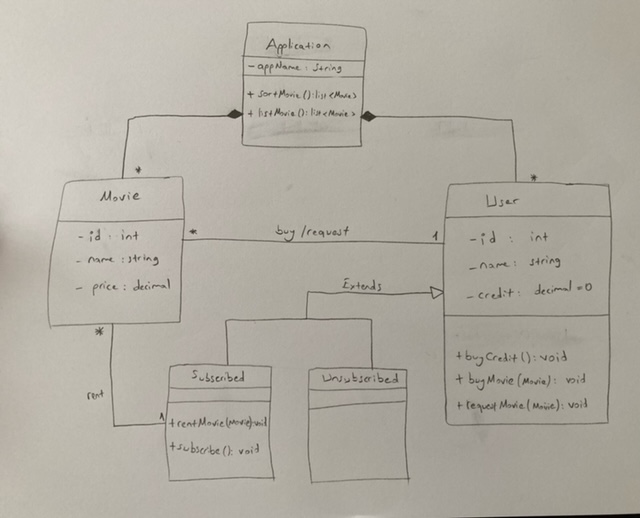 Application
- appName : string
+ sortMovie () : list <Movie>
+ listMovie () : list <Movie>
*
*
Movie
- id : int
- name : string
- price : decimal
*
buy /request
1
User
- id : int
- name : string
- credit : decimal = 0
+ buyCredit () : void
+ buyMovie (Movie) : void
+ requestMovie (Movie) : void
Extends
*
rent
1
Subscribed
+ rentMovie (Movie) : void
+ subscribe () : void
Unsubscribed